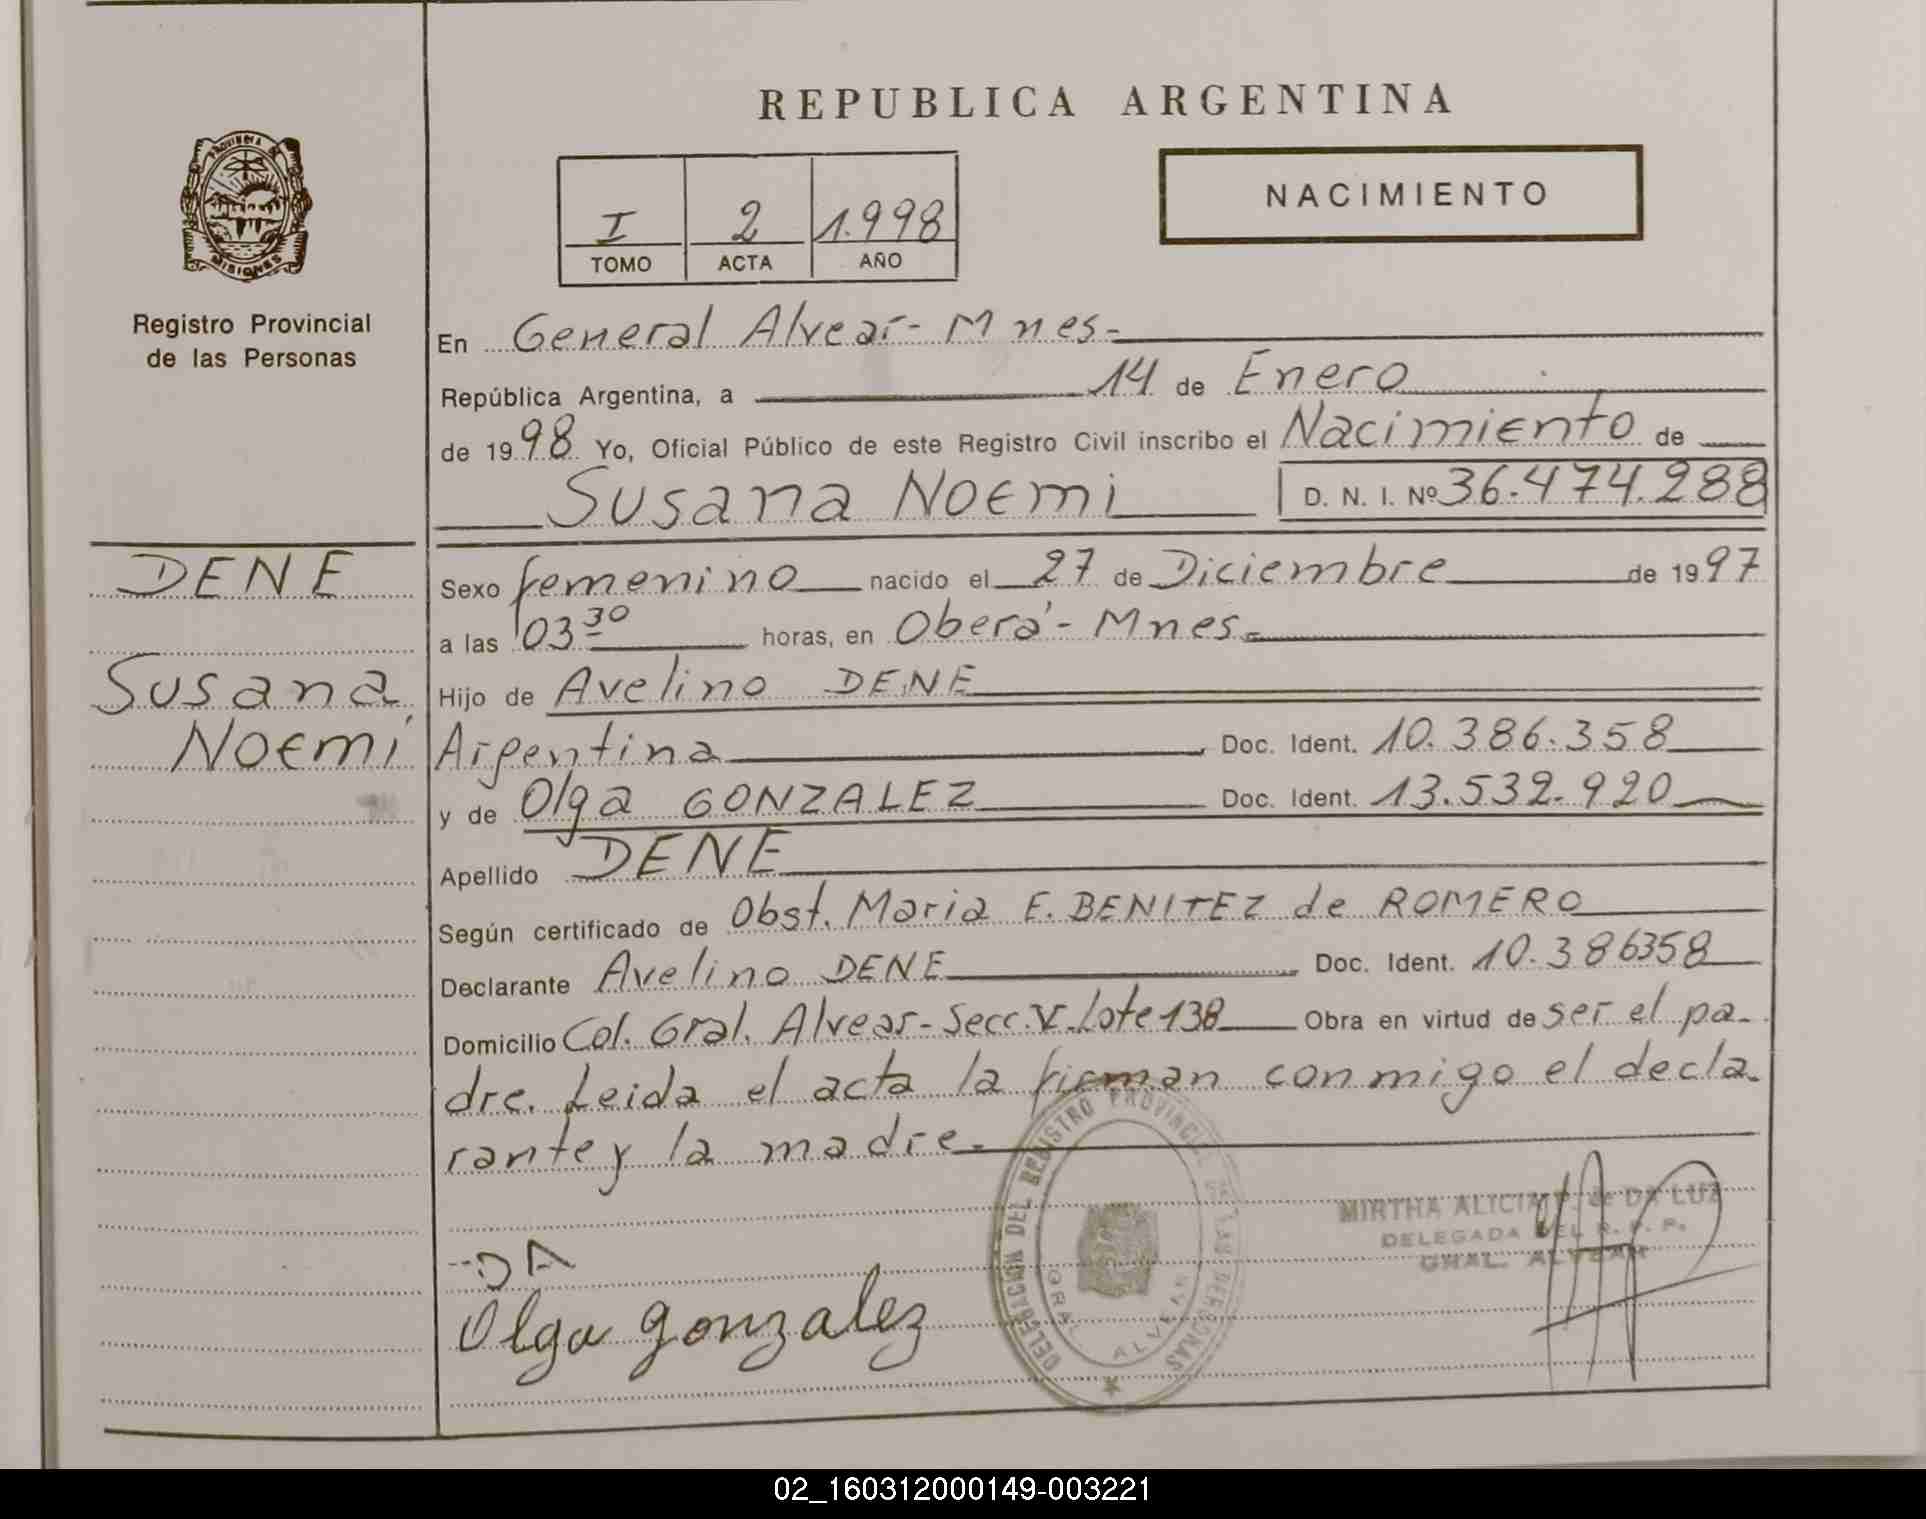 REPUBLICA ARGENTINA
PROVINCIA DE
MISIONES
Registro Provincial
de las Personas
I 2 1.998
TOMO ACTA AÑO
NACIMIENTO
En General Alvear - Mnes.
República Argentina, a 14 de Enero
de 1998 Yo, Oficial Público de este Registro Civil inscribo el Nacimiento de
Susana Noemi D. N. I. Nº 36.474.288
DENE
Susana
Noemi
Sexo femenino nacido el 27 de Diciembre de 1997
a las 03 30 horas, en Oberá - Mnes.
Hijo de Avelino DENE
Argentina Doc. Ident. 10.386.358
y de Olga GONZALEZ Doc. Ident. 13.532.920
Apellido DENE
Según certificado de Obst. Maria E. BENITEZ de ROMERO
Declarante Avelino DENE Doc. Ident. 10.386358
Domicilio Col. Gral. Alvear - Secc. V. Lote 138 Obra en virtud de ser el pa-
dre. Leida el acta la firman conmigo el decla-
rante y la madre.
DELEGACION DEL REGISTRO PROVINCIAL DE LAS PERSONAS
GRAL. ALVEAR
MIRTHA ALICIA P. de DA LUZ
DELEGADA DEL R. P. P.
GRAL. ALVEAR
DA
Olga Gonzalez
02_160312000149-003221